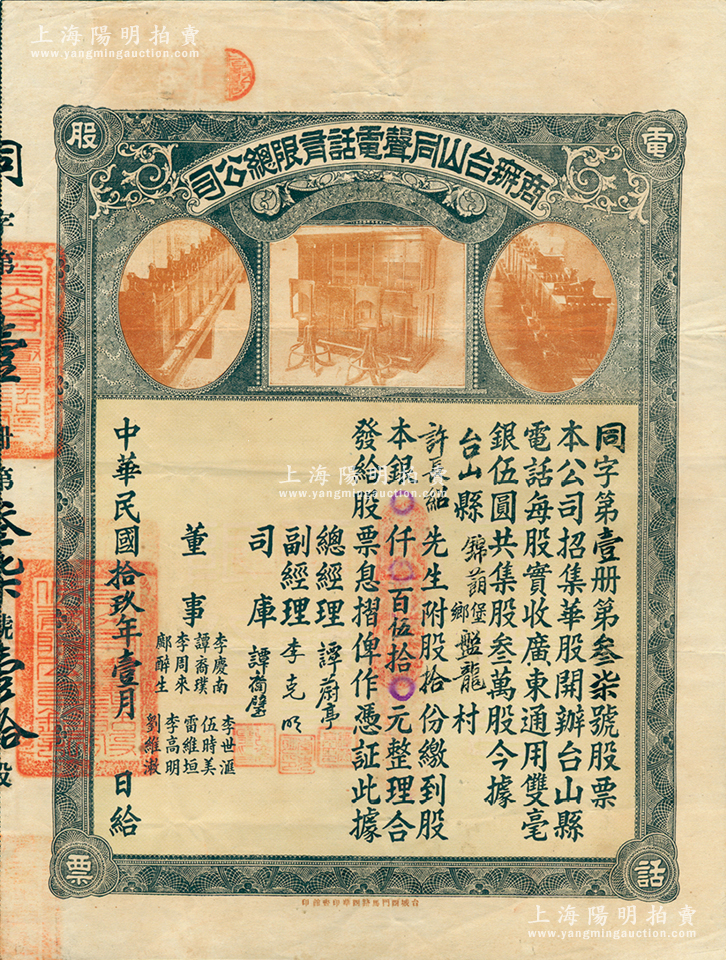 上海陽明拍賣
www.yangmingauction.com
上海陽明拍賣
www.yangmingauction.com
電
話
股
票
商辦台山同聲電話有限總公司
同字第壹册第叁柒號股票
本公司招集華股開辦台山縣
電話每股實收廣東通用雙毫
銀伍圓共集股叁萬股今據
台山縣 堡鄉盤龍村
許長紹先生附股拾份繳到股
本銀〇仟〇百伍拾〇元整理合
發給股票息摺俾作憑証此據
總經理 譚蔚亭
副經理 李克明
司庫 譚裔璧
董事
李慶南 李世滙
譚裔璞 伍時美
李周來 雷維垣
鄺酥生 李高明
劉維澂
中華民國拾玖年壹月 日給
同字第壹册第叁柒號壹拾股
上海陽明拍賣
www.yangmingauction.com
上海陽明拍賣
www.yangmingauction.com